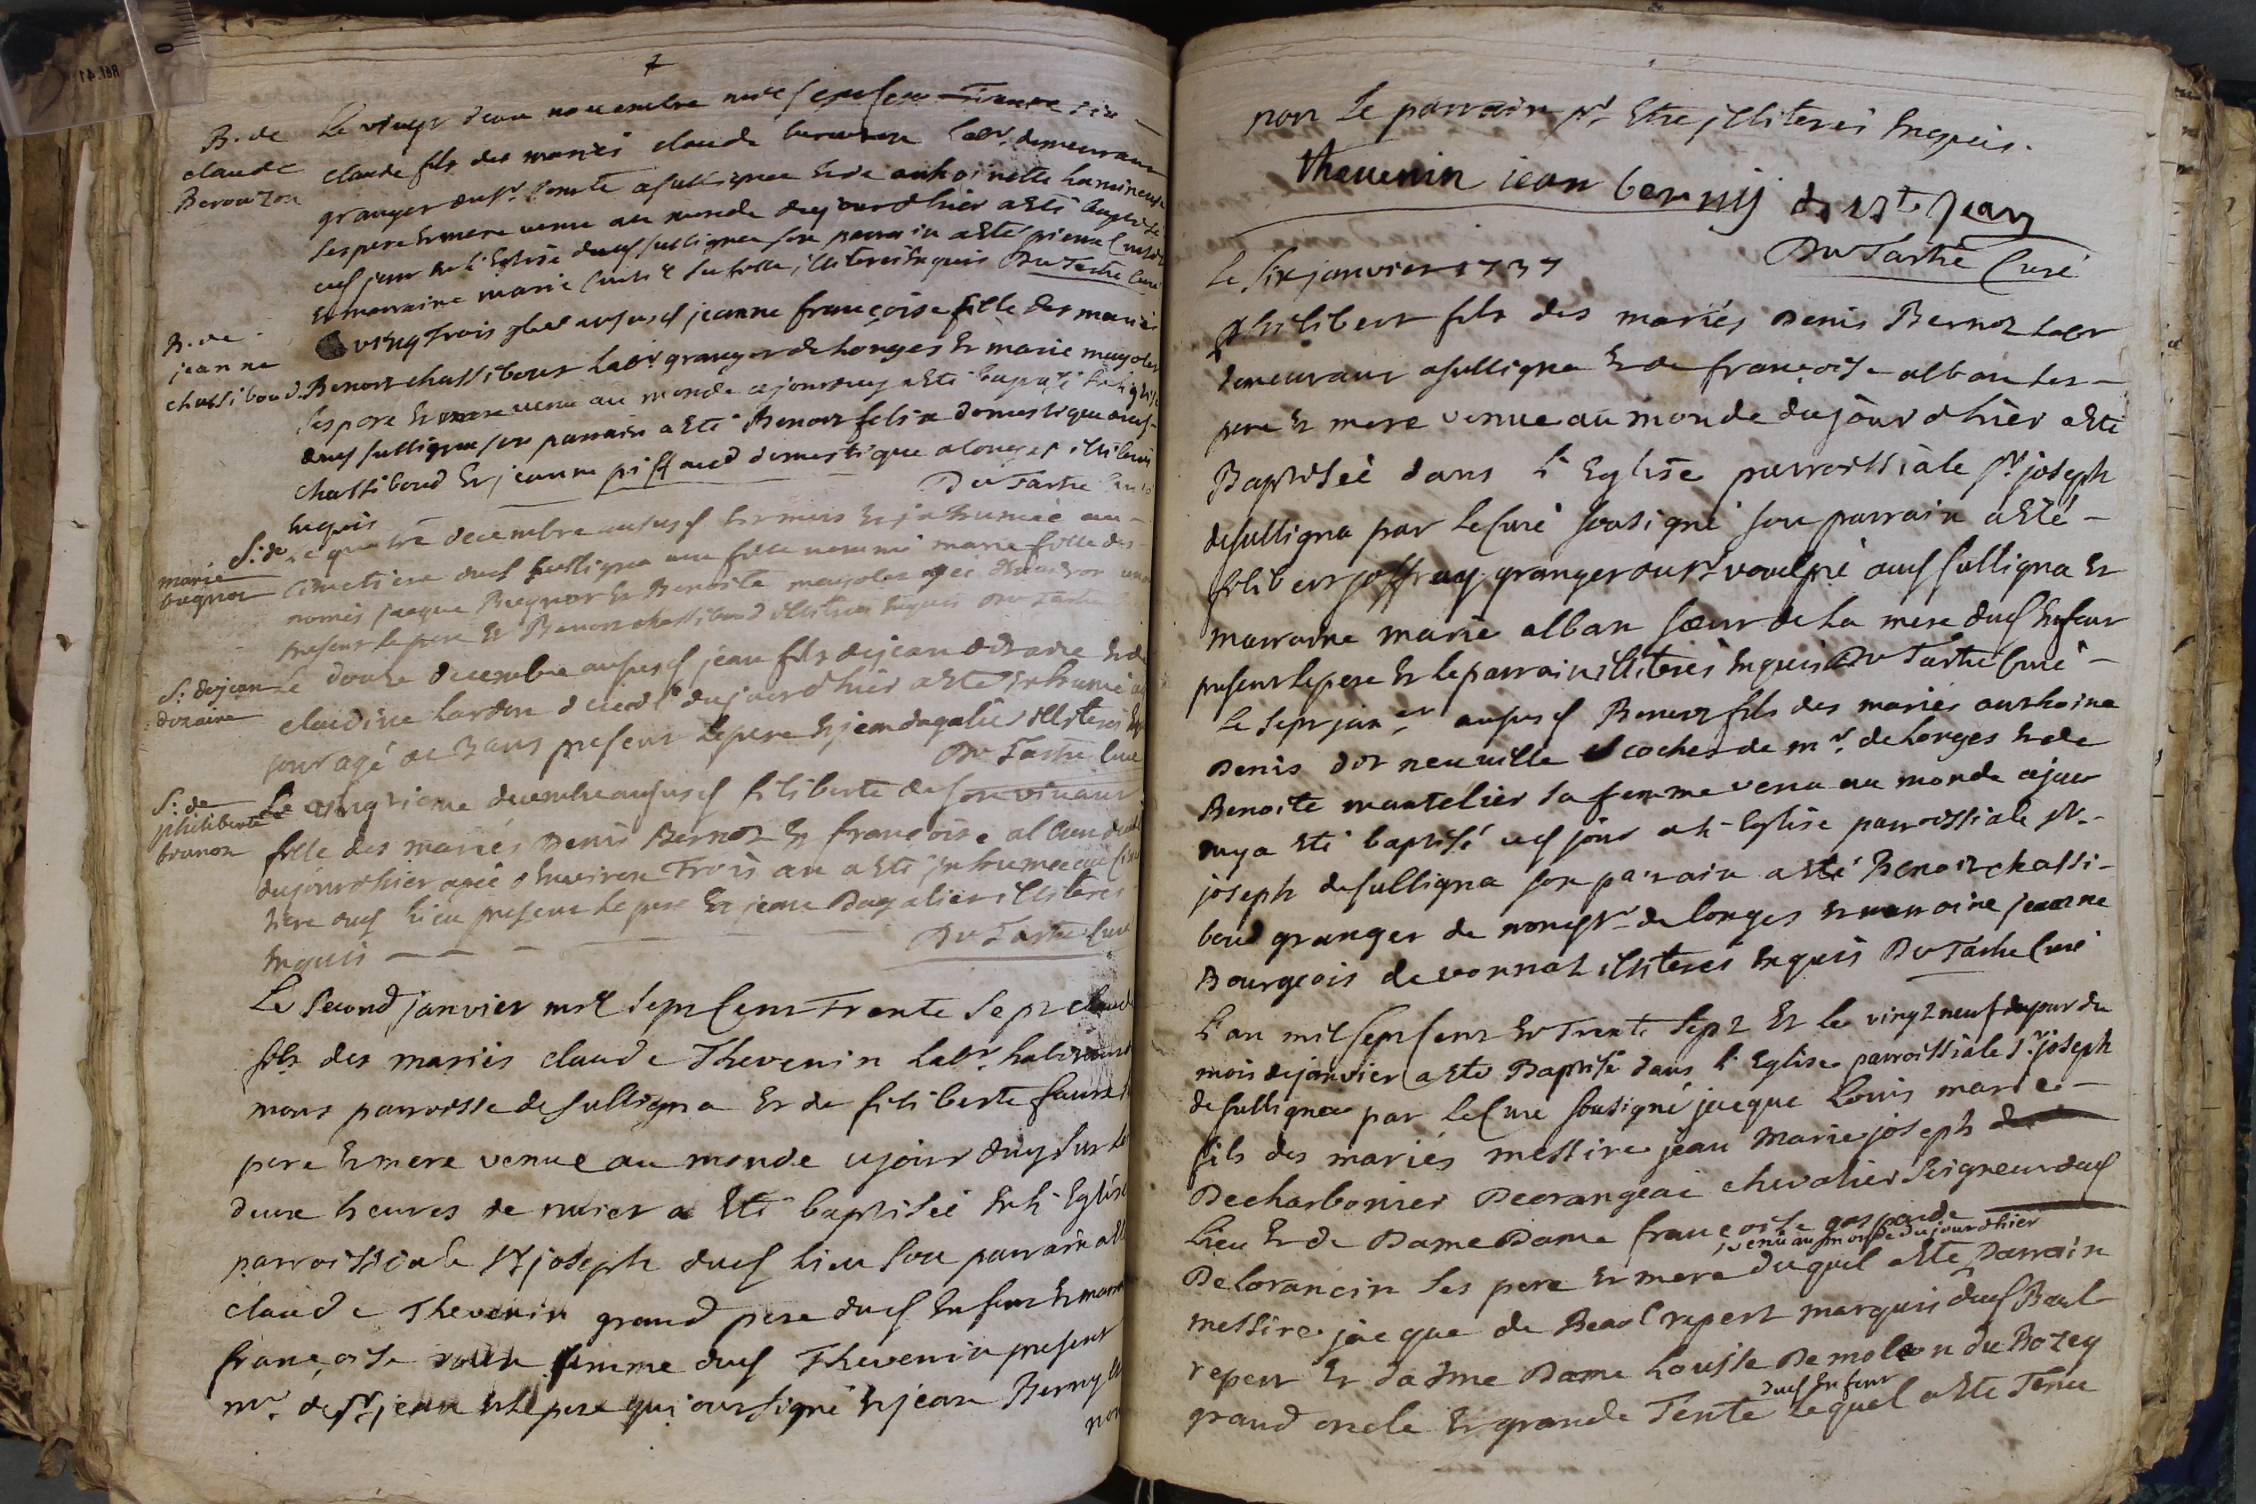 B. de
claude
Berouzon
Le vingt deux novembre mil sept cent Trente six
claude fils des mariés claude labr. demeurant
granger du sr. a sulligna et de anthoinette
ses pere et mere venu au monde dujourdhier a esté baptisé
cejourd en l'Eglise dud sulligna son parrain a esté pierre
et marraine marie sa fille illiterés enquis Du Tartre Curé
B. de
jeanne
chassiboud.
vingtrois 9bre ausus d jeanne françoise fille des mariés
Benoit chassiboux labr granger de longes et marie mayoles
ses pere et mere venu au monde cejourduy a esté baptisé
dud sulligna son parrain a esté Benoit felix domestique aud
chassiboud et jeanne piffaud domestique a longes illiterés
enquis Du Tartre Curé
S. de
marie
bugnot
Le quatre decembre ausus d est mort et inhumée au
cimetiere dud sulligna une fille nommé marie fille des
només jacque Bugnot et Benoite mayoles agée denviron
present le pere et Benoit chassiboud illiterés enquis Du Tartre
S. dejean
dozaine
Le douze decembre ausus d jean fils dejean dozaine et de
claudine lardon decedé dujourdhier a esté inhumé
jour agé de 3 ans present le pere et jean dagalier illiterés
Du Tartre Curé
S. de
philiberte
brunon
Le vingtieme decembre ausus d filiberte
fille des mariés Denis Bernoz et françoise alban
dujourdhier agée d'Environ Trois an a esté inhumée au cime
tiere dud lieu present le pere et jean Dagalier illiterés
enquis Du Tartre Curé
Le second janvier mil sept Cent Trente sept claude
fils des mariés claude Thevenin labr. habitant
mons parroisse de sulligna et de filiberte
pere et mere venue au monde cejourduy sur le
deux heures de nuict a Eté baptisée en l'Eglise
parroissiale St joseph dud lieu son parrain a
claude Thevenin grand pere dud Enfant et marr
françoise femme dud Thevenin present
mr. de St jean et le pere qui ont signé et jean Berny
non
non le parrain pr. Etre illiterés Enquis.
thevenin jean bernij de St jean
Du Tartre Curé
Le six janvier 1737
philibert fils des mariés Denis Bernoz labr
demeurant a sulligna et de françoise alban ses
pere et mere venue au monde dujourdhier a esté
Baptisée dans l'Eglise parroissiale St joseph
de sulligna par le Curé sousigné son parrain a esté
filibert joffray granger du sr voulpié aud sulligna et
marraine marie alban sœur de la mere dud Enfant
present le pere et le parrain illiterés enquis Du Tartre Curé
Le sept janer ausus d Benoit fils des mariés anthoine
Denis dot neuville cocher de mr. de longes et de
Benoite mantelier sa femme venu au monde cejour
duy a eté baptisé ced jour a l'Eglise parroissiale St.
joseph de sulligna son parrain a esté Benoit chassi-
boud granger de mond sr de longes et marraine jeanne
Bourgeois de vonnas illiterés Enquis Du Tartre Curé
L'an mil sept Cent et Trente sept et le vingt neuf du
mois de janvier a esté Baptisé dans l'Eglise parroissiale St joseph
de sulligna par le Curé sousigné jacque Louis marie
fils des mariés messire jean marie joseph
Decharbonier Decrangeac chevalier seigneur dud
Lieu et de Dame Dame françoise gasparde
venu au monde dujourdhier
Delorancin ses pere et mere duquel a esté parrain
messire jacque de Beaurepert marquis dud Beau
repert et dadme Dame Louise Demoleon du Bozey
dud Enfant
grand oncle et grande Tente lequel a esté Tenu